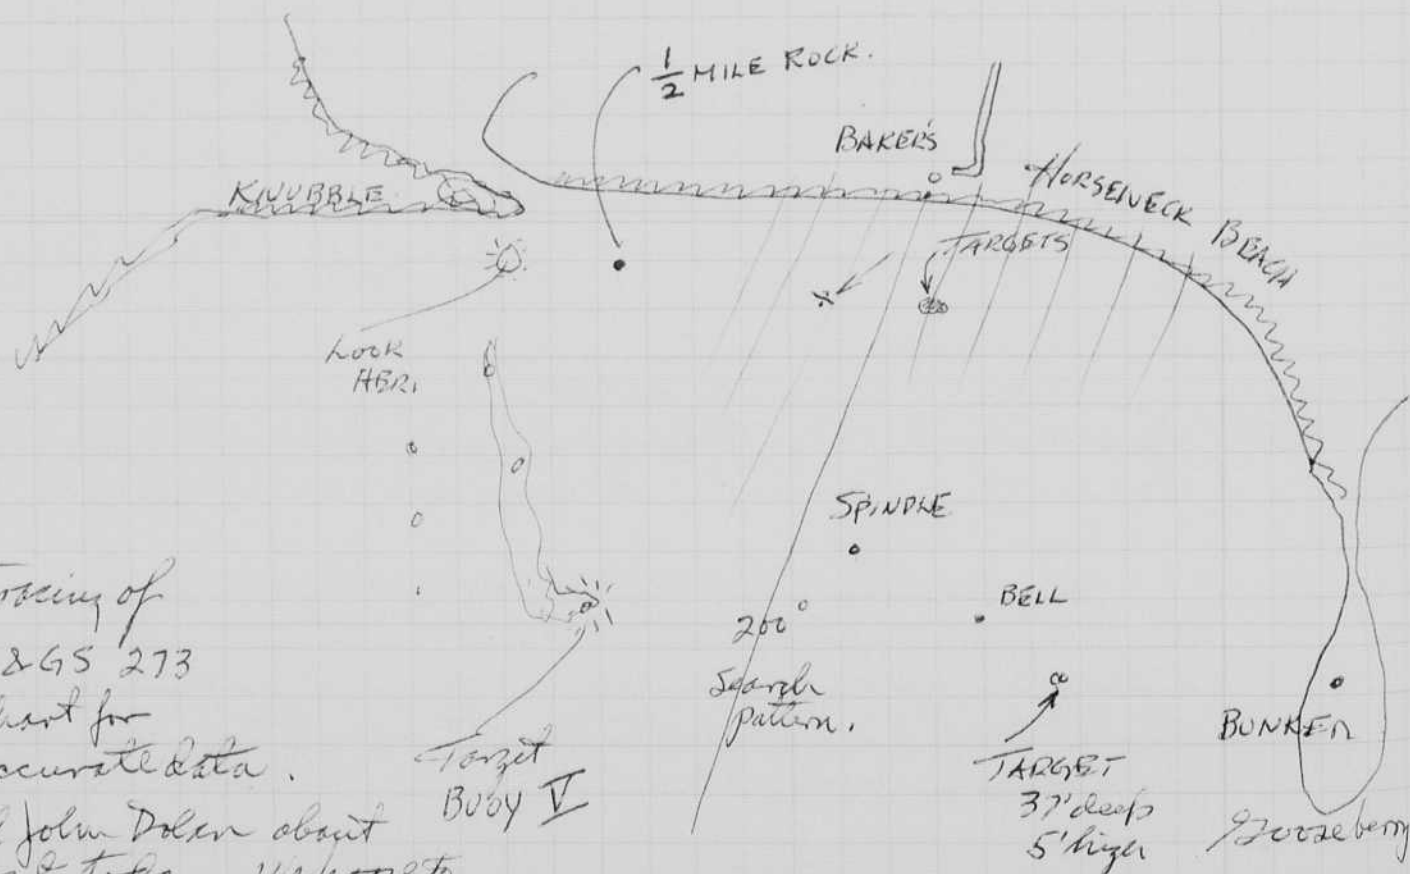 1/2 MILE ROCK.
BAKER'S
KNUBBLE
HORSENECK BEACH
TARGETS
LOOK
HBR.
SPINDLE
BELL
200°
Search
pattern.
Tracing of
&GS 273
chart for
accurate data.
Target
BUOY V
TARGET
37' deep
5' high
BUNKER
Gooseberry
John Dolan about